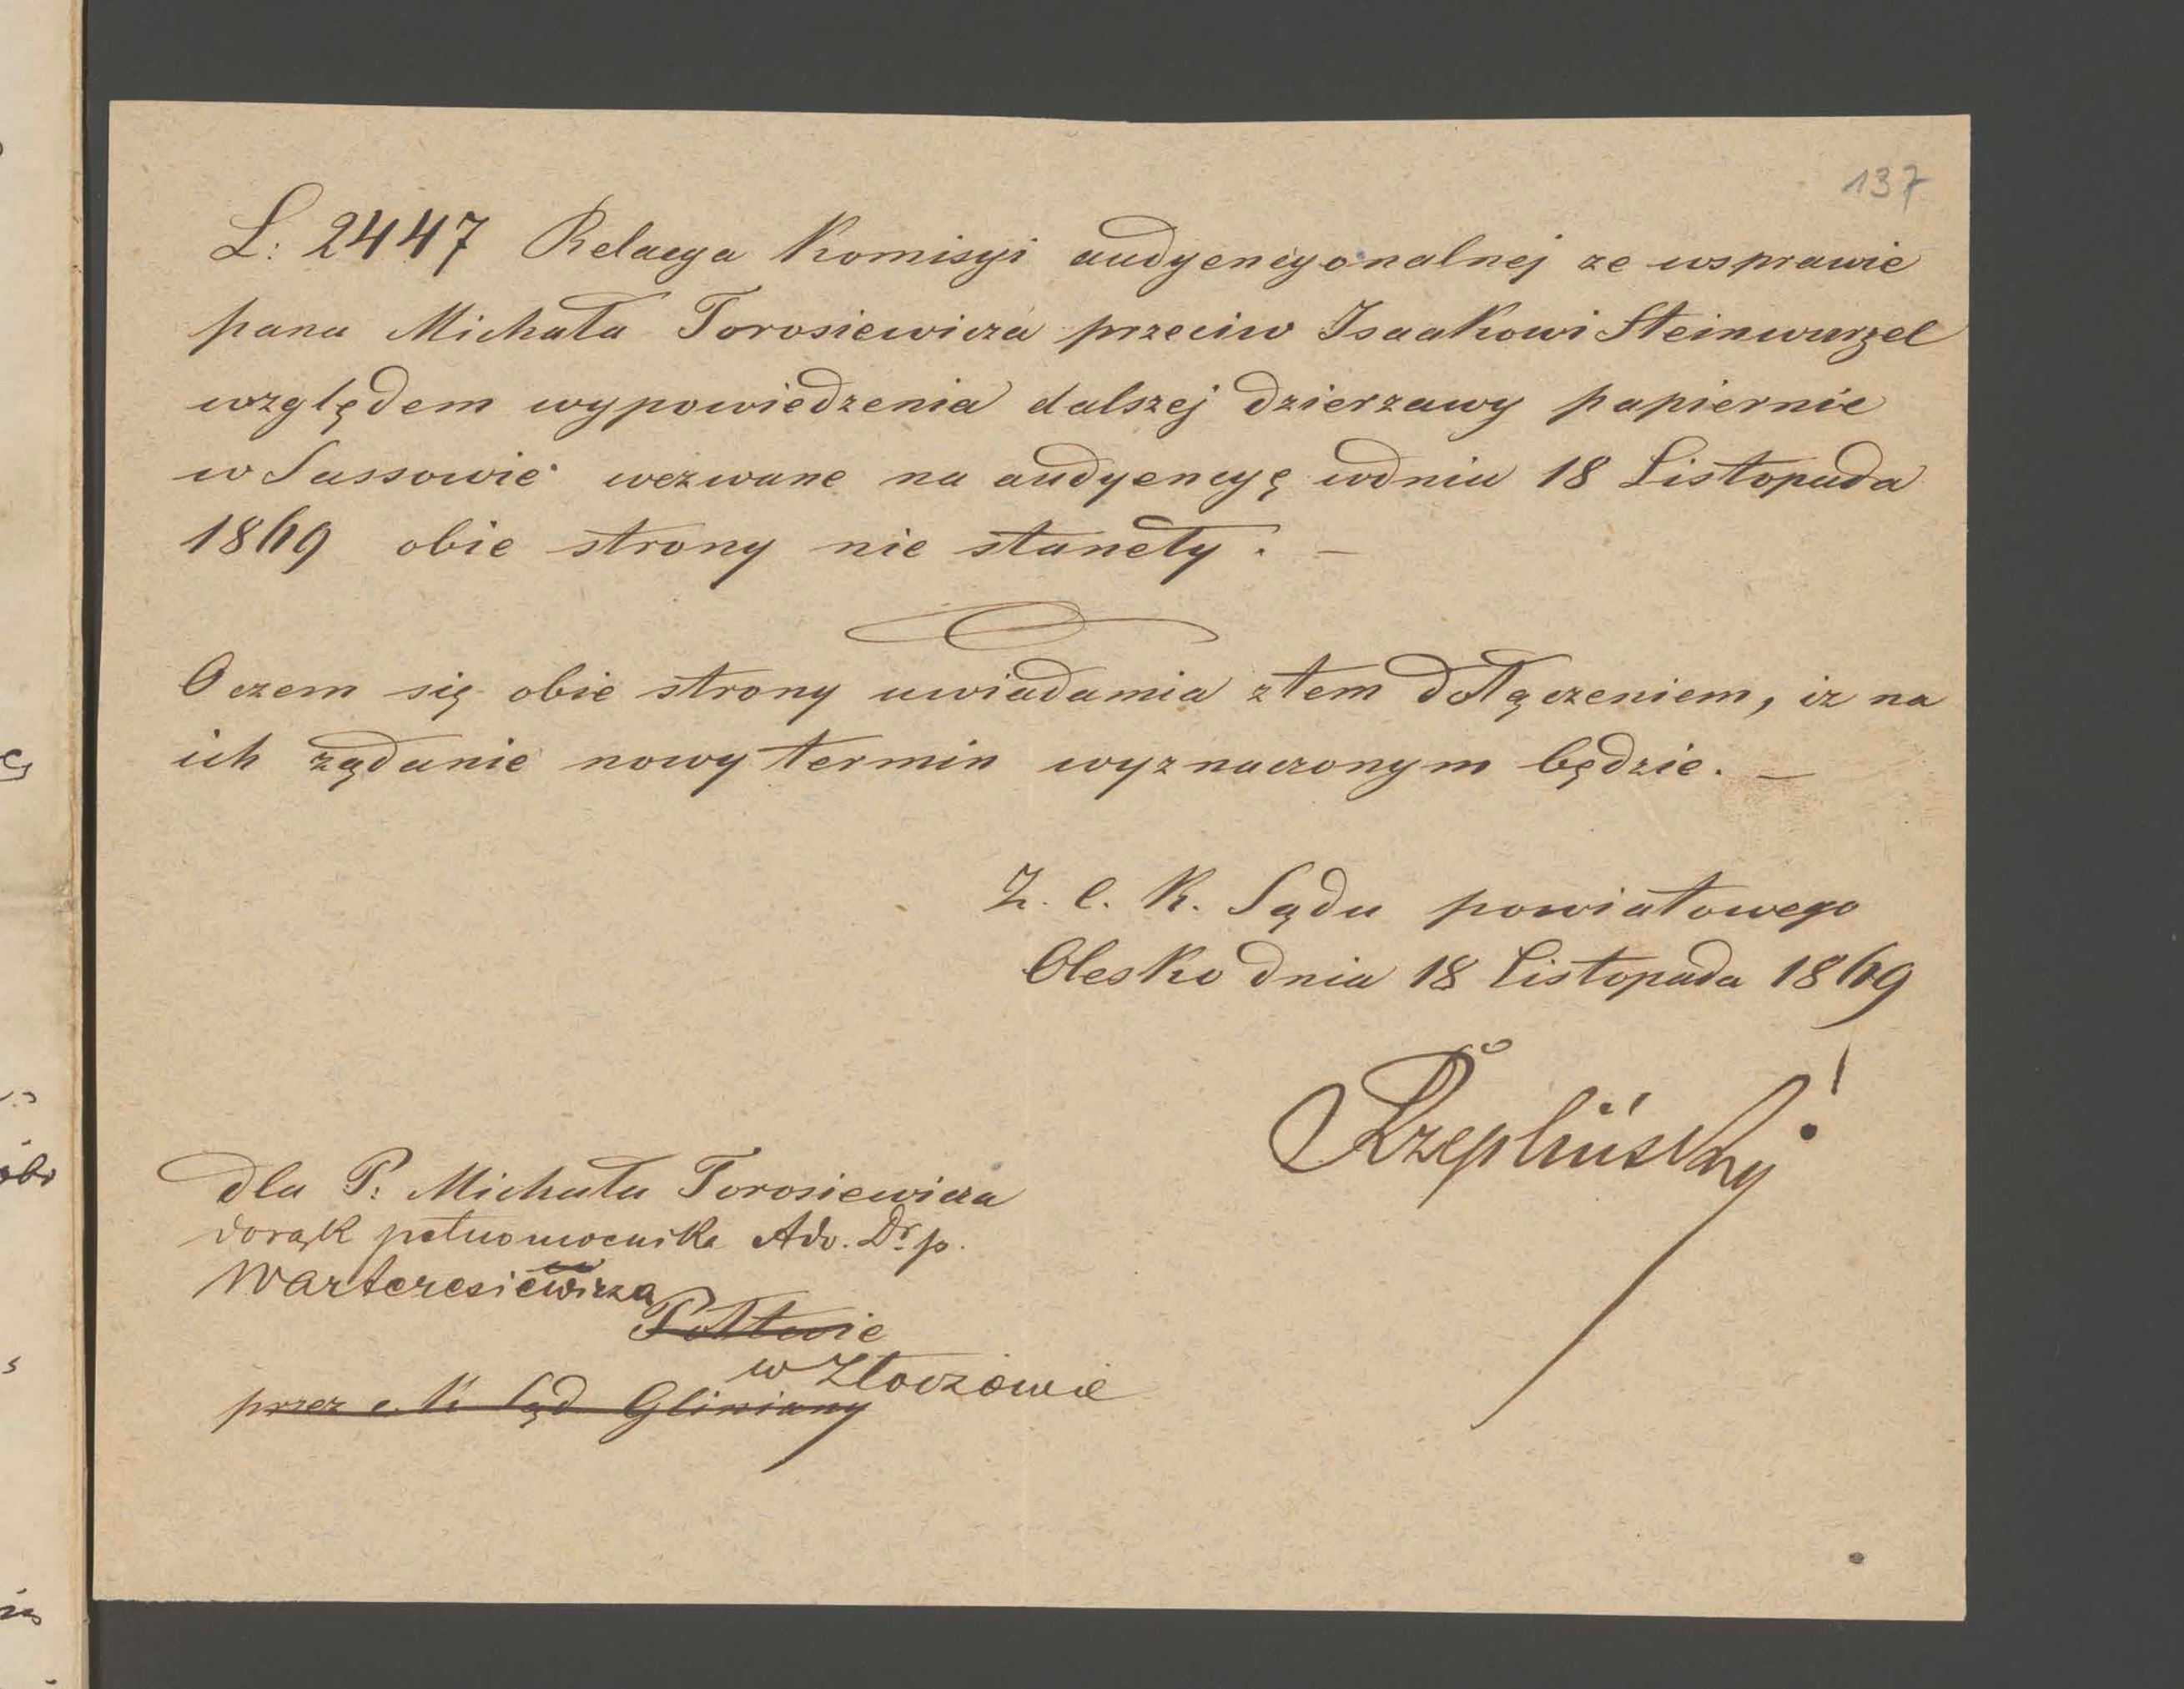 137
L: 2447 Relacya Komisyi audyencyonalnej ze wsprawie
pana Michała Torosiewicza przeciw Isaakowi Steinwurzel
względem wypowiedzenia dalszej dzierzawy papiernie
w Sassowie wezwane na audyencyę wdniu 18 Listopada
1869 obie strony nie staneły. —
O czem się obie strony uwiadamia ztem dołączeniem, iz na
ich rządanie nowy termin wyznaczonym będzie. —
Z. c. k. Sądu powiatowego
Olesko dnia 18 Listopada 1869
Rzepliński
dla P. Michała Torosiewicza
dorąk pełnomocnika Adv. Dr. p.
Warteresiewicza
Połtwie
w Złoczowie
przez c. k. Sąd Gliniany